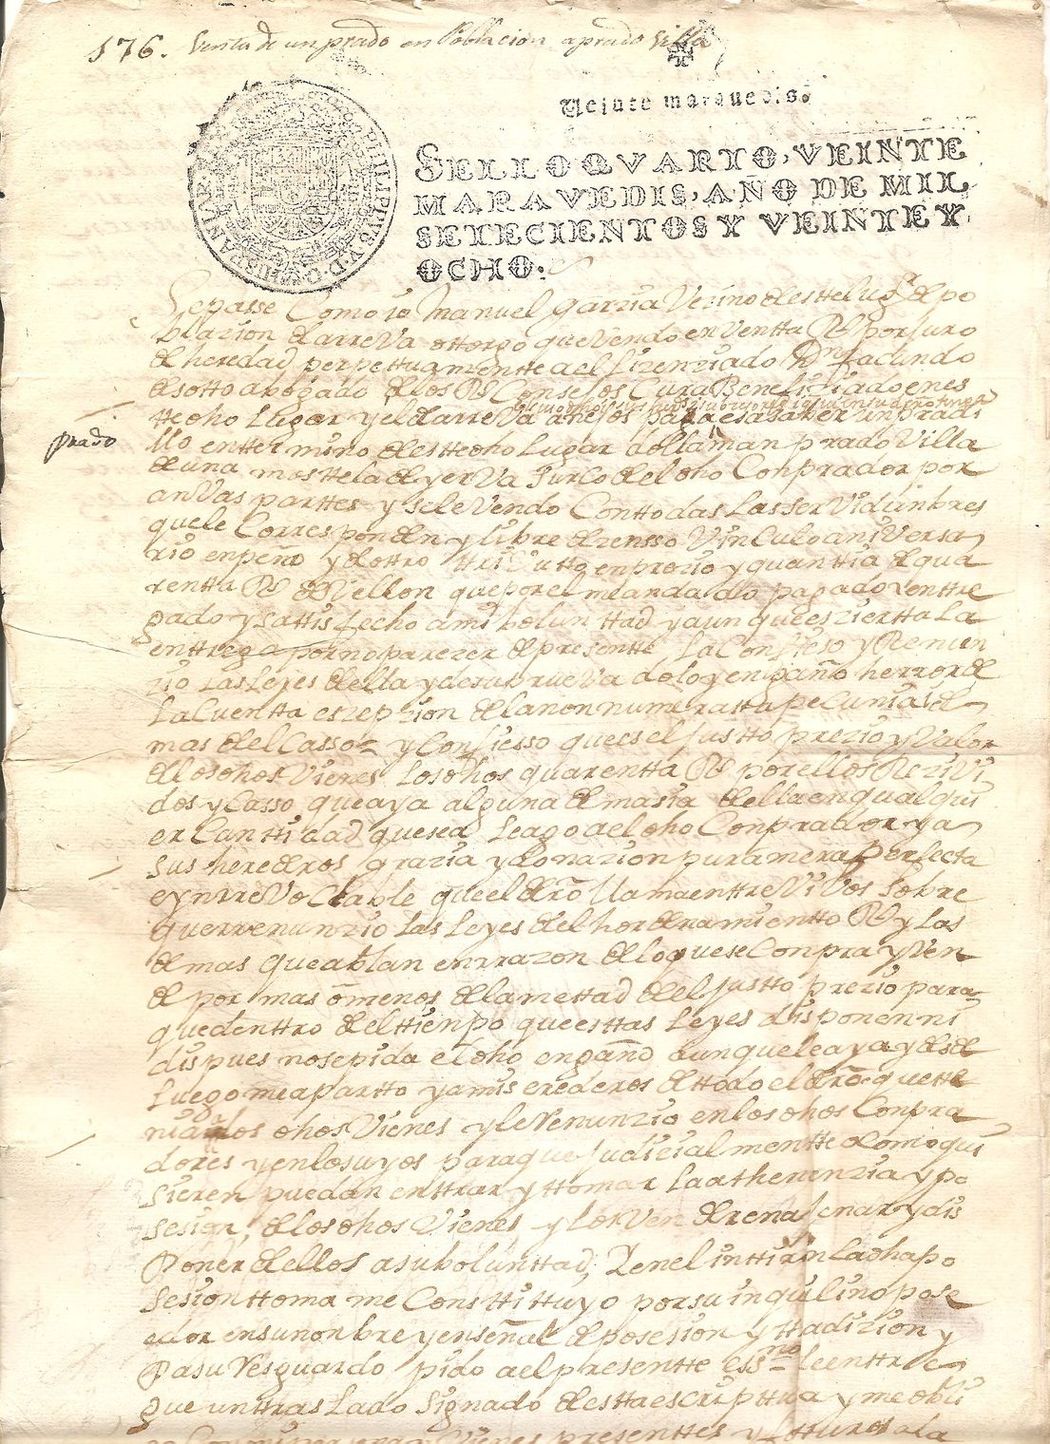 176. Venta de un prado en Poblacion a prado Villa
Veinte maravedis.
SELLO QVARTO, VEINTE
MARAVEDIS, AÑO DE MIL
SETECIENTOS Y VEINTE Y
OCHO.
PHILIPPVS V D G HISPANIAR
Sepasse Como io Manuel Garzia Vezino de estte lugr de po
blazion de arreva ottorgo que Vendo en Ventta Rl por Juro
de heredad perpettuamentte a el lizenziado Dn facundo
de sotto abogado de los Rs Consejos Cura Benefiziado en es
tte dho Lugar y el de arreva anejos para es a saber un pradi
prado
llo en ttermino de estte dho Lugar do llaman prado Villa
de una mosttela de yerva Surco de el dho Conprador por
anvas parttes y se le Vendo Con ttodas las servidunbres
que le Corresponden y libre de zensso Vinculo aniversa
rio enpeño y de ottro ttrivutto en prezio y quanttia de qua
rentta Rs de Vellon que por el me an dado pagado enttre
gado y sattisfecho a mi boluntad y aunque es ziertta la
enttrega por no parezer de presentte la Confieso y Renun
zio las Leyes de ella y de su prueva dolo y engaño herror de
la Cuentta eszepzion de la non numeratta pecunia y de
mas de el Casso y Confiesso que es el justto prezio y Valor
de los dhos Vienes los dhos quarentta Rs por ellos Rezivi
dos y Casso que aya alguna demasia de ella en qualqui
er Canttidad que sea le ago a el dho Conprador y a
sus herederos grazia y donazion pura mera perfecta
e ynrrevocable que el dro llama enttre Vivos sobre
que rrenunzio las Leyes de el hordenamientto Rl y las
demas que ablan en rrazon de lo que se Conpra y Ven
de por mas o menos de la mettad de el justto prezio para
que denttro de el ttienpo que esttas Leyes disponen ni
dispues no se pida el dho engaño aunque le aya y desde
luego me apartto y a mis erederos de ttodo el dro que tte
nia a los dhos Vienes y le Renunzio en los dhos Conpra
dores y en los suyos para que judizialmentte o como qui
sieren puedan enttrar y ttomar la athenenzia y po
sesion de los dhos Vienes y los Venderena jenar y dis
poner de ellos a su boluntad; Y en el inttirin la dha po
sesion ttoma me Consttittuyo por su inquilino pose
edor en su nonbre y en señal de posesion y ttradizion y
Pa su Resguardo pido a el presentte essno le enttre
gue un ttraslado Signado de estta escripttura y me obli